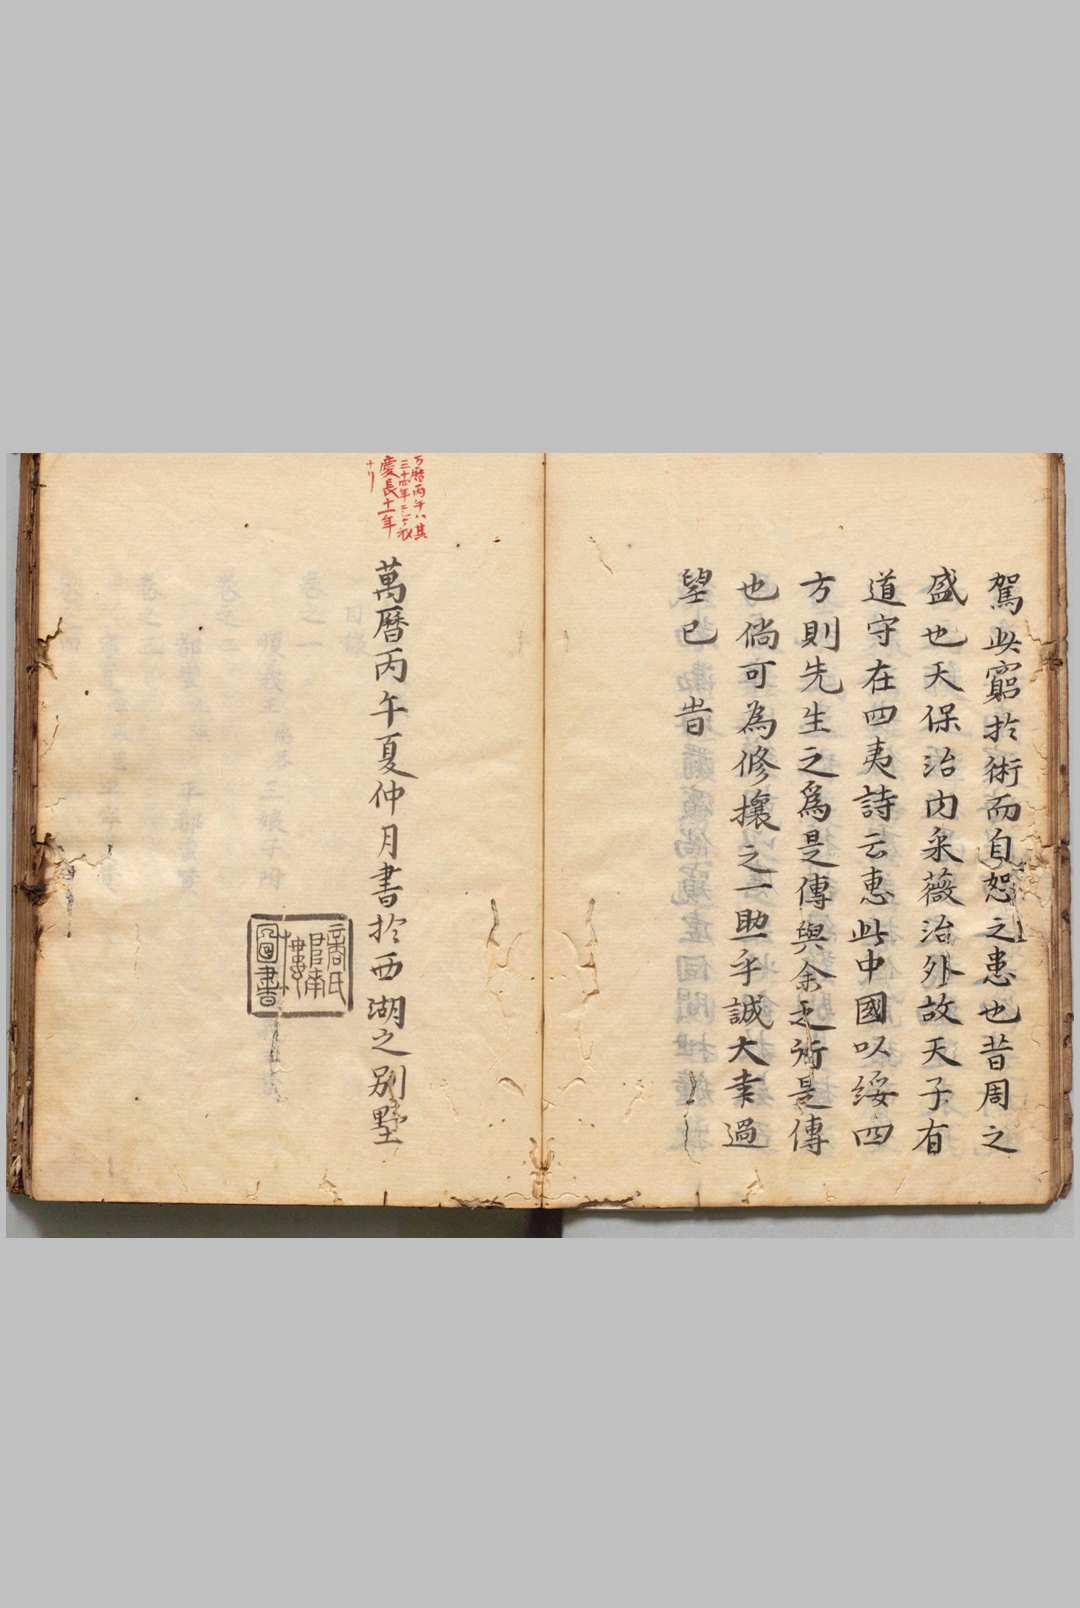 駕此窮於術而自恕之患也昔周之
盛也天保治内采薇治外故天子有
道守在四夷詩云惠此中國以綏四
方則先生之爲是傳與余之
是傳
也倘可為修攘之一助乎誠大幸過
望已旹
万曆丙午八其
三十四年
慶長十一年
萬曆丙午夏仲月書於西湖之別墅
氏
圖書